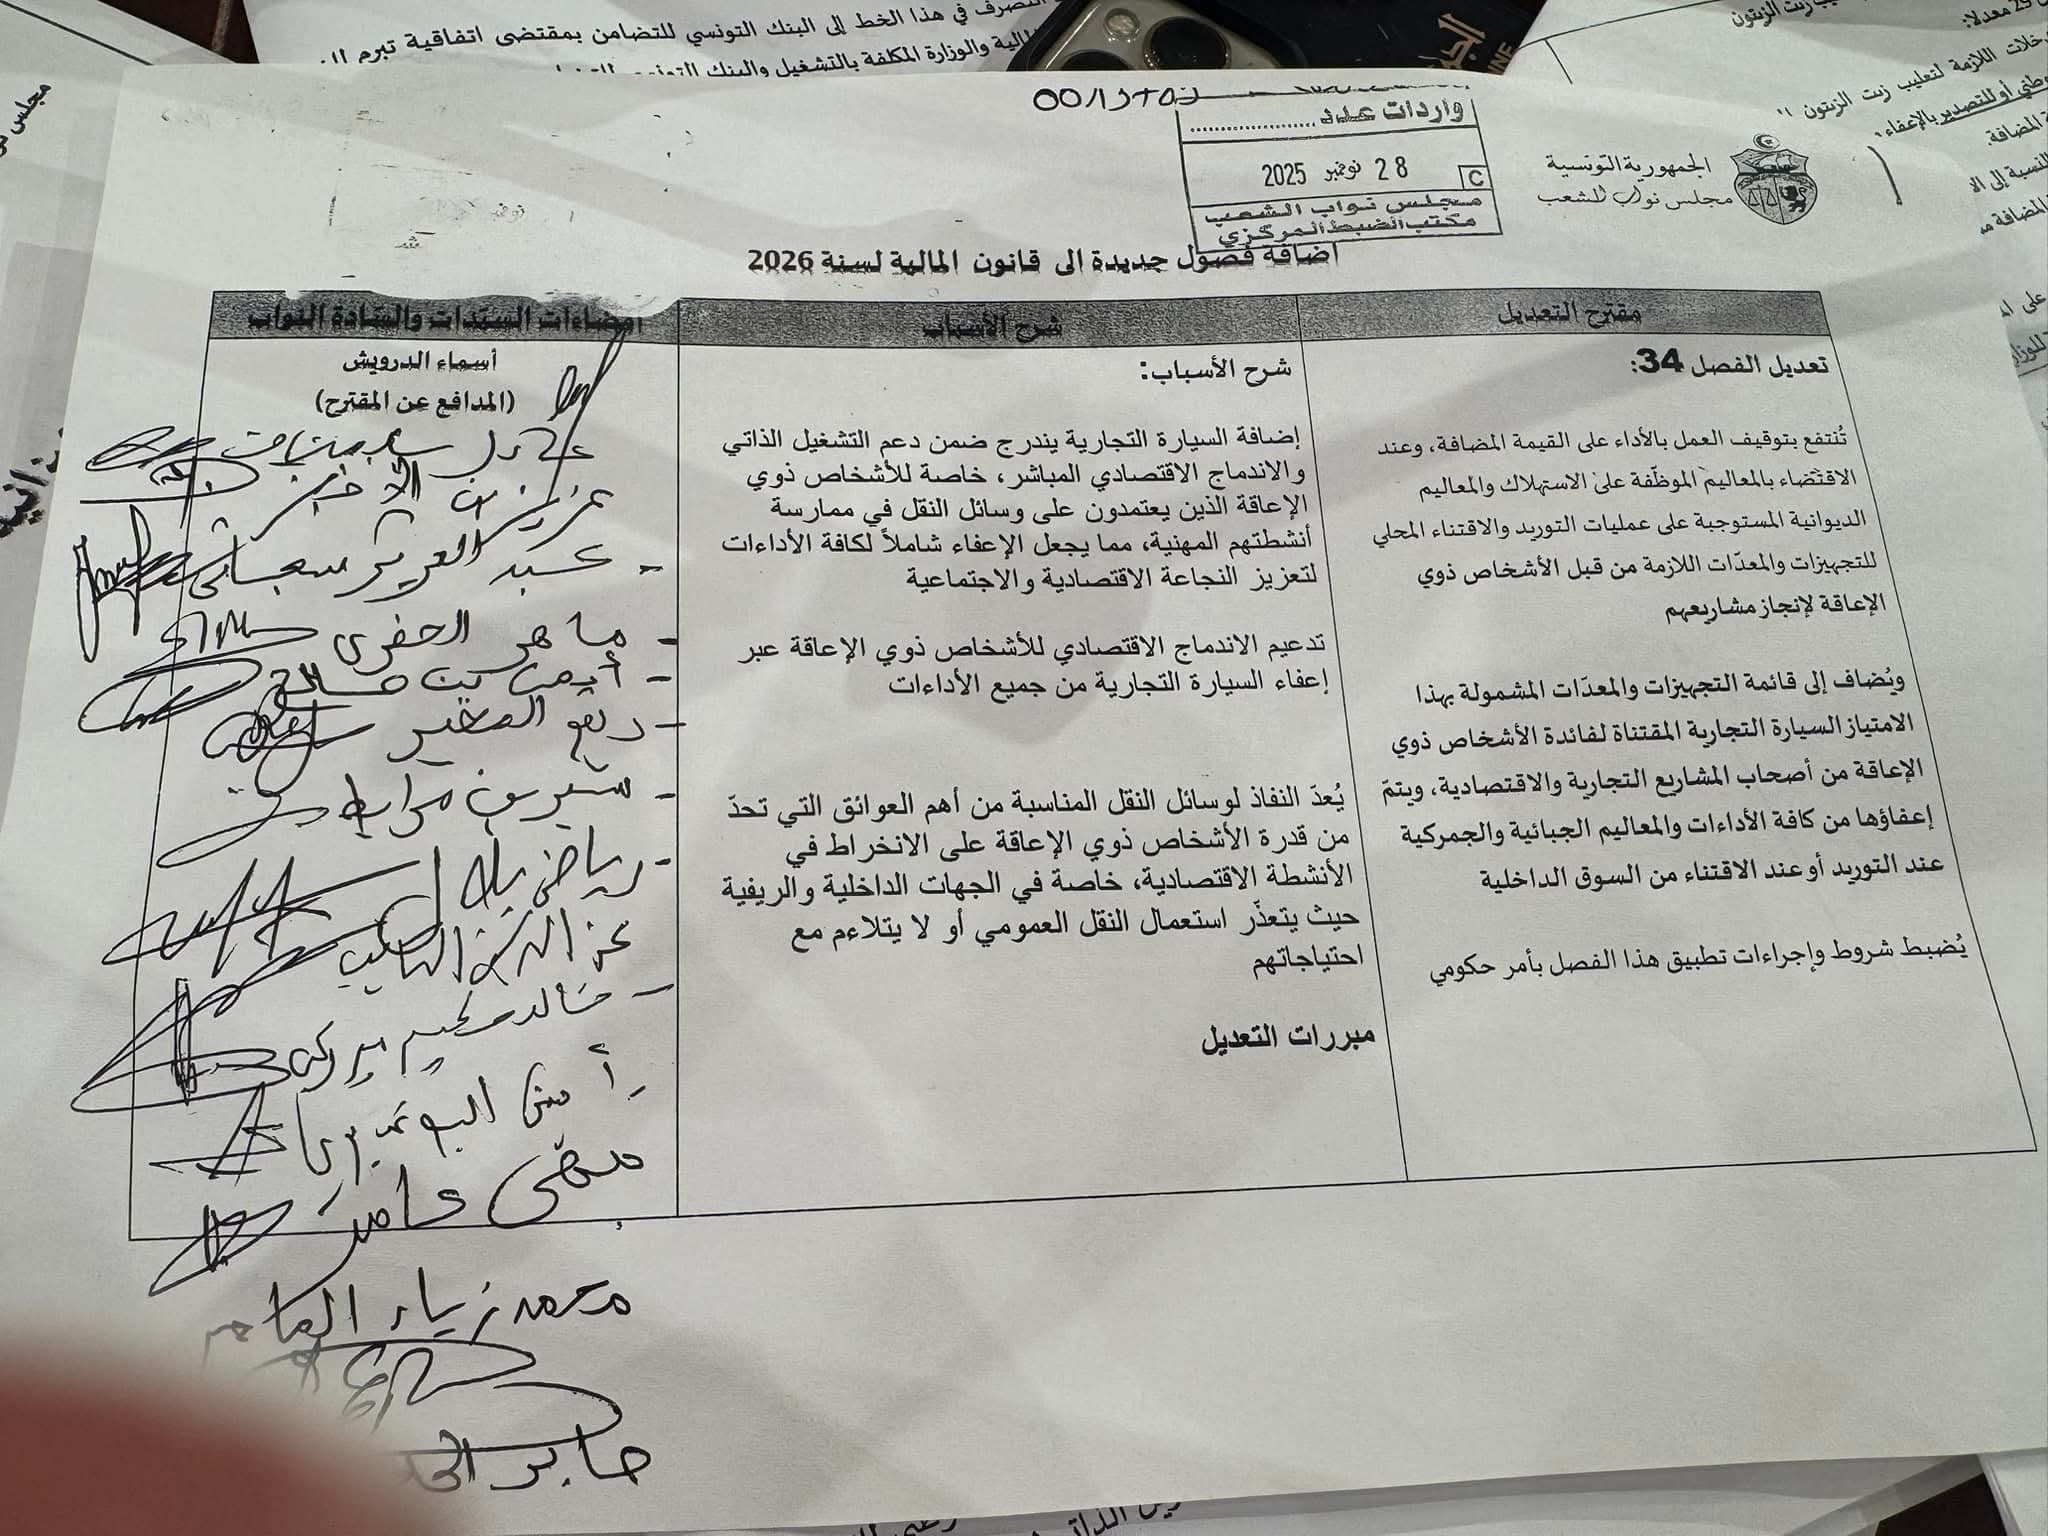 التصرف في هذا الخط إلى البنك التونسي للتضامن بمقتضى اتفاقية تبرم
والوزارة المكلفة بالتشغيل والبنك
اللازمة لتعليب زيت الزيتون
أو للتصدير بالإعفاء
الجمهورية التونسية
مجلس نواب الشعب
واردات عدد
28 نوفمبر 2025
C
مجلس نواب الشعب
مكتب الضبط المركزي
اضافة فصول جديدة الى قانون المالية لسنة 2026
مقترح التعديل
تعديل الفصل 34:
تُنتفع بتوقيف العمل بالأداء على القيمة المضافة، وعند
الاقتضاء بالمعاليم الموظّفة على الاستهلاك والمعاليم
الديوانية المستوجبة على عمليات التوريد والاقتناء المحلي
للتجهيزات والمعدّات اللازمة من قبل الأشخاص ذوي
الإعاقة لإنجاز مشاريعهم
ويُضاف إلى قائمة التجهيزات والمعدّات المشمولة بهذا
الامتياز السيارة التجارية المقتناة لفائدة الأشخاص ذوي
الإعاقة من أصحاب المشاريع التجارية والاقتصادية، ويتمّ
إعفاؤها من كافة الأداءات والمعاليم الجبائية والجمركية
عند التوريد أو عند الاقتناء من السوق الداخلية
يُضبط شروط وإجراءات تطبيق هذا الفصل بأمر حكومي
شرح الأسباب
شرح الأسباب:
إضافة السيارة التجارية يندرج ضمن دعم التشغيل الذاتي
والاندماج الاقتصادي المباشر، خاصة للأشخاص ذوي
الإعاقة الذين يعتمدون على وسائل النقل في ممارسة
أنشطتهم المهنية، مما يجعل الإعفاء شاملاً لكافة الأداءات
لتعزيز النجاعة الاقتصادية والاجتماعية
تدعيم الاندماج الاقتصادي للأشخاص ذوي الإعاقة عبر
إعفاء السيارة التجارية من جميع الأداءات
يُعدّ النفاذ لوسائل النقل المناسبة من أهم العوائق التي تحدّ
من قدرة الأشخاص ذوي الإعاقة على الانخراط في
الأنشطة الاقتصادية، خاصة في الجهات الداخلية والريفية
حيث يتعذّر استعمال النقل العمومي أو لا يتلاءم مع
احتياجاتهم
مبررات التعديل
إمضاءات السيّدات والسّادة النواب
أسماء الدرويش
(المدافع عن المقترح)
عزيز بن الأخضر
عبد العزيز شعباني
- ماهر
- أيمن بن صالح
- الصغير
- سيرين مرابط
- رياض بلال
عز الدين التايب
- خالد حكيم مبروكي
عامر
محمد زياد
صابر